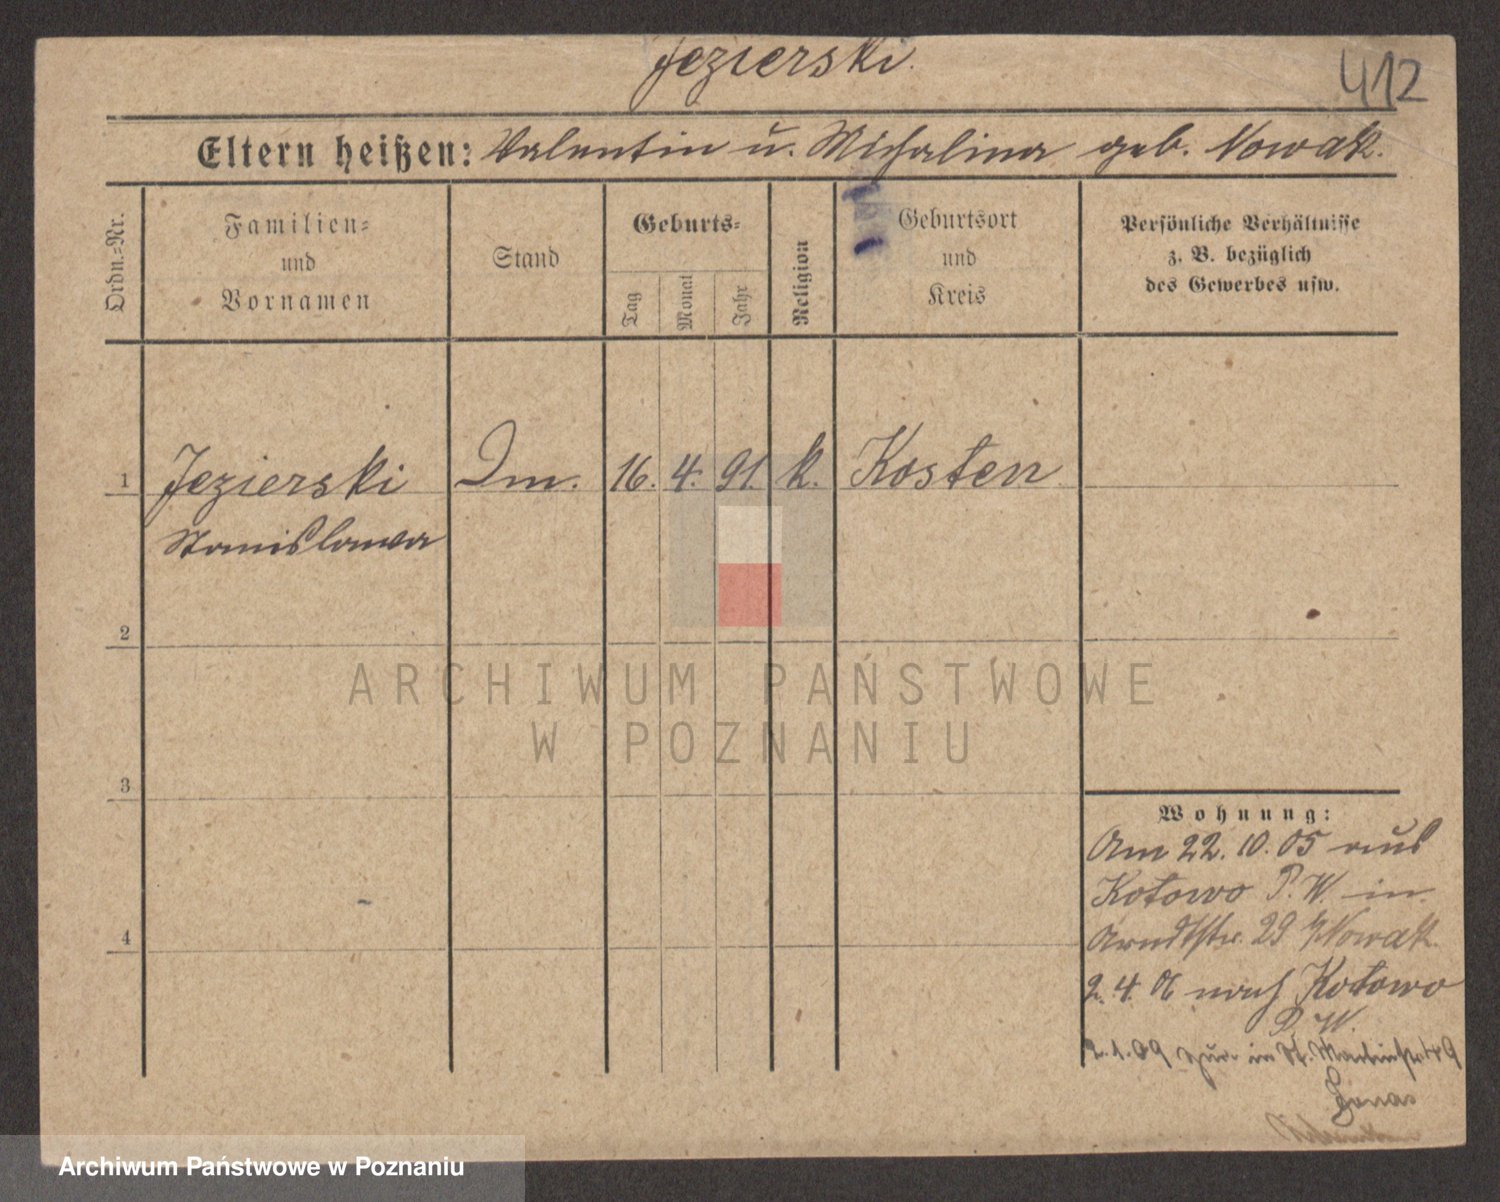 Jezierski.
412
Eltern heißen: Valentin u. Michalina geb. Nowak.
Ordn.=Nr.
Familien=
und
Vornamen
Stand
Geburts=
Tag
Monat
Jahr
Religion
Geburtsort
und
Kreis
Persönliche Verhältnisse
z. B. bezüglich
des Gewerbes usw.
1 Jezierski Dm. 16. 4. 91. k. Kosten
Stanislawa
2
3
4
Wohnung:
Am 22. 10. 05 aus
Kotowo P. W. in
Arndtstr. 29 Nowak.
2. 4. 06 nach Kotowo
P. W.
2. 1. 09 zur. in St. Martinstr.
Jonas
ARCHIWUM PAŃSTWOWE
W POZNANIU
Archiwum Państwowe w Poznaniu